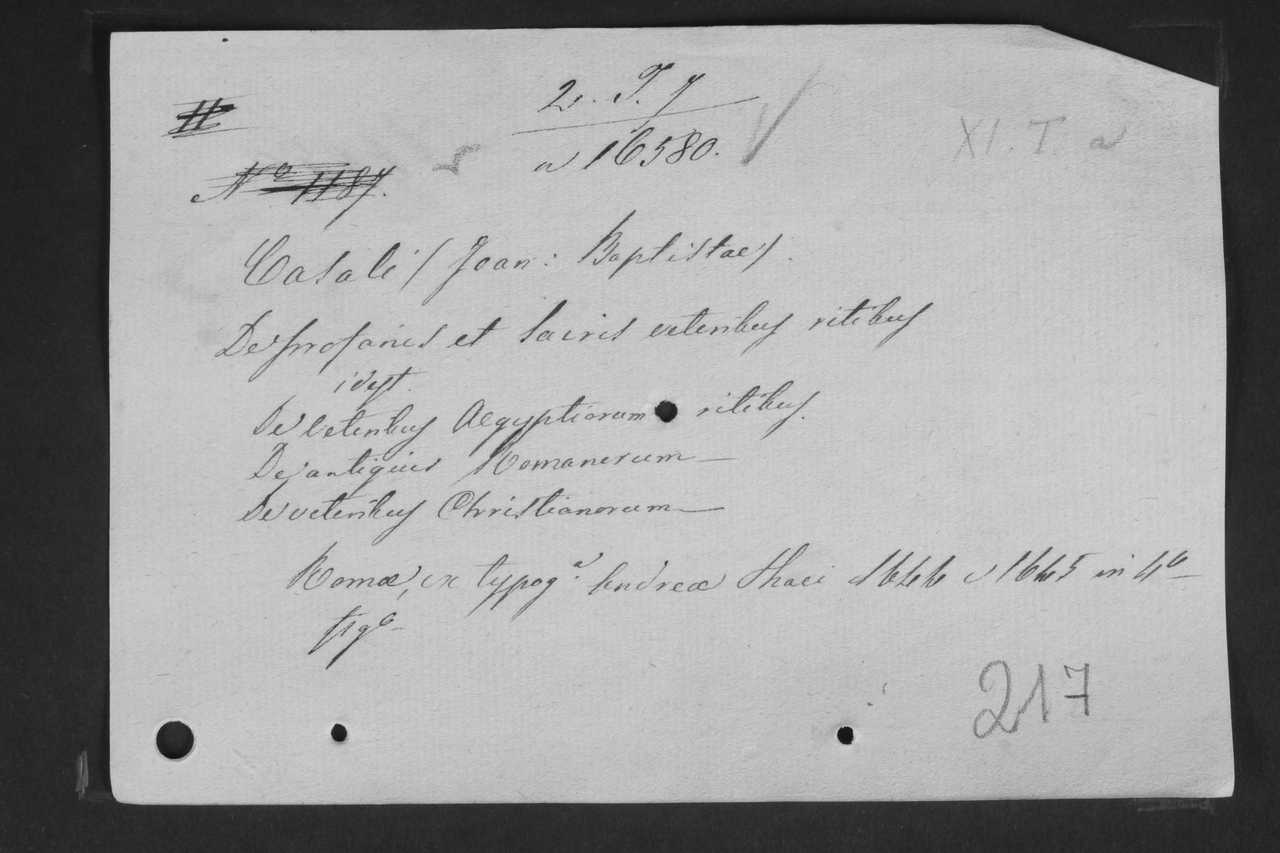 H
2. T. 7
XI. T. a
a 16580.
Nº 1187.
Casali (Joan: Baptistae).
De profanis et sacris veteribus ritibus
idest.
De veteribus Aegyptiorum ritibus.
De antiquis Romanorum —
De veteribus Christianorum —
Romæ, ex typog.ª Andreæ Phaei 1644 e 1645 in 4º
figº
217